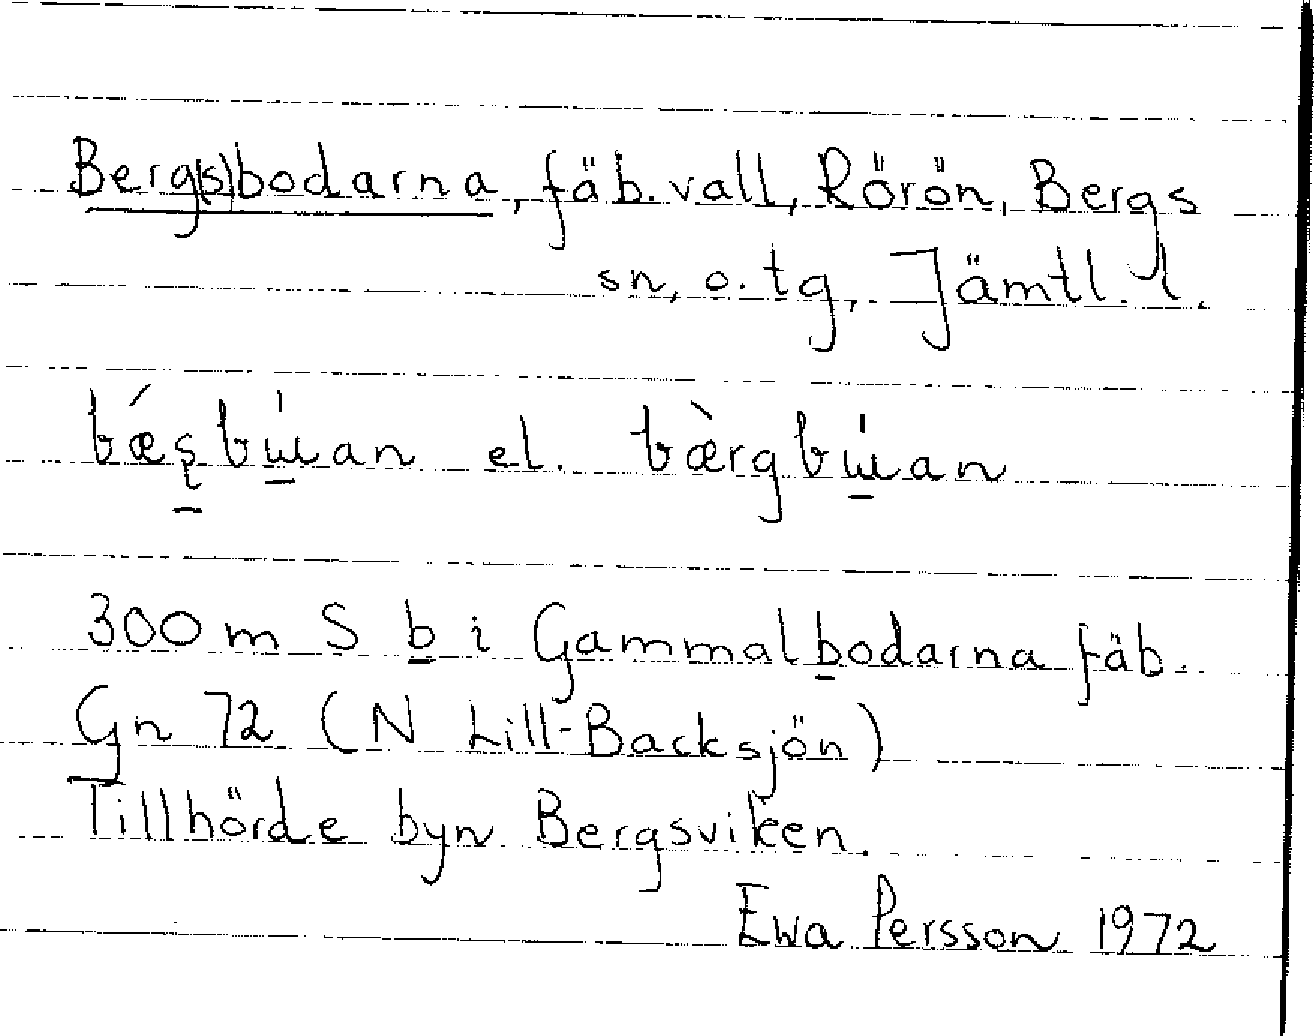 Berg(s)bodarna, fäb.vall, Rörön, Bergs
sn, o. tg, Jämtl. l.
el.
300 m S b i Gammalbodarna fäb.
Gn 72 (N Lill-Backsjön)
Tillhörde byn Bergsviken.
Ewa Persson 1972